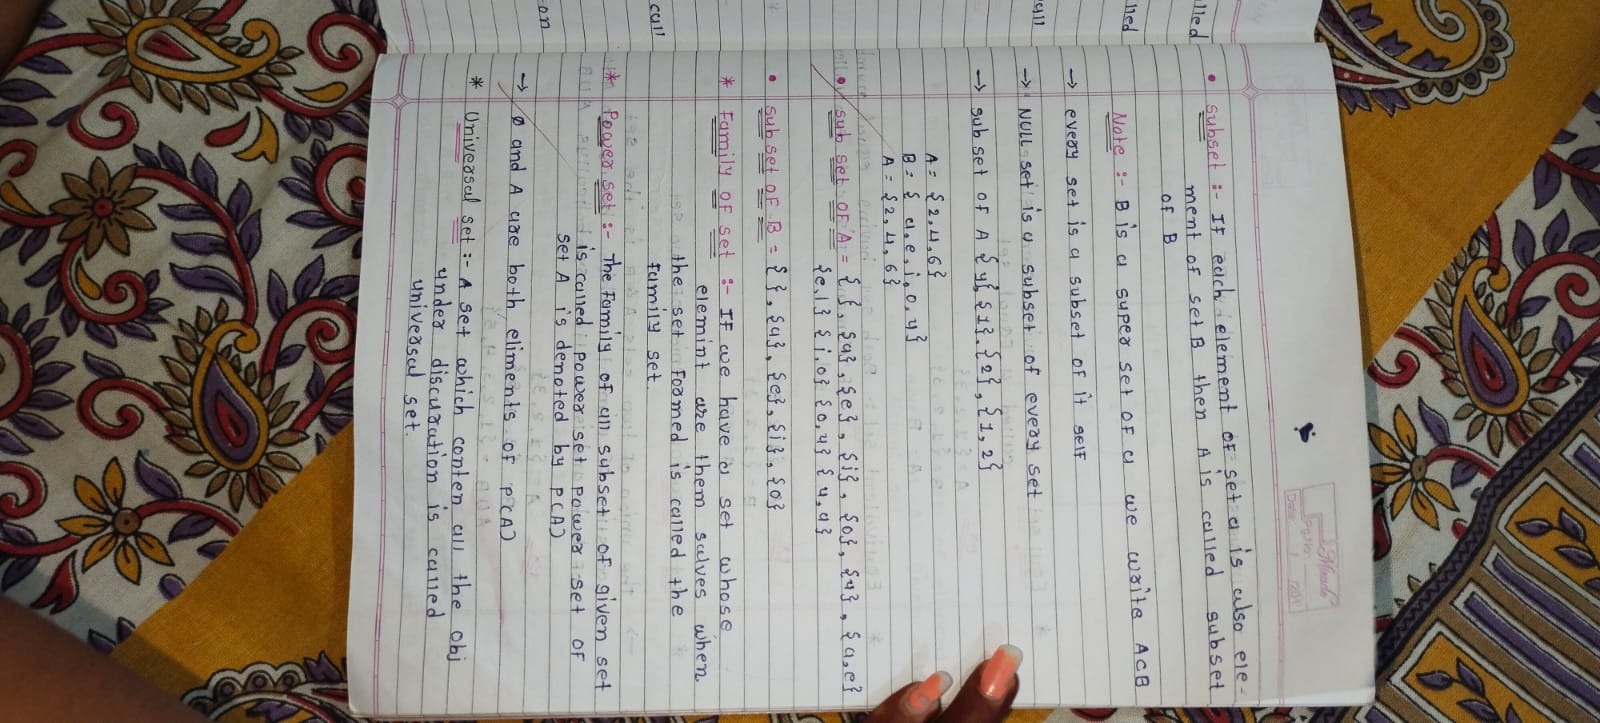 • subset :- IF each element of set a is also ele-
ment of set B then A is called subset
of B
Note :- B is a super set OF a we write A⊂B
→ every set is a subset of it self
→ NULL set is a subset of every set
→ subset of A {y{, {1}. {2}, {1, 2}
A = {2,4,6}
B = { a,e,i,o,u}
A = {2,4,6}
• sub set OF A = { }, {a} {e}, {i}, {o}, {u}, {a,e}
{e,i} { i,o} {o,u} { u,a}
• subset OF B = { }, {a}, {e}, {i}, {o}
* Family OF set :- IF we have a set whose
elemint are them salves when
the set formed is called the
family set.
* Power set :- The family of all subset of given set
is called power set power set of
set A is denoted by p(A)
→ ø and A are both eliments of p(A)
* Universal set :- A set which conten all the obj
under discuration is called
universal set.
call
on